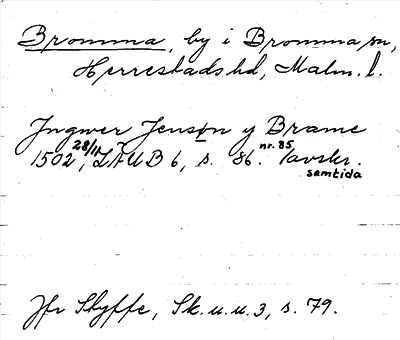 Bromma, by i Bromma sn,
Herrestads hd, Malm. l.
Jngwer Jenssøn y Brame
1502 28/11, LÅUB 6, s. 86. nr. 85 Tavskr.
samtida
Jfr Styffe, Sk. u. u. 3, s. 79.